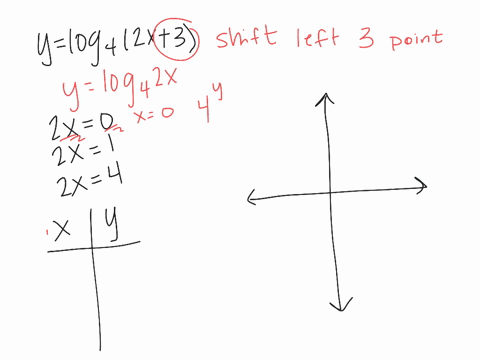 y=log₄(2x+3) shift left 3 point
y=log₄2x
2x=0 x=0 4^y
2x=1
2x=4
x y